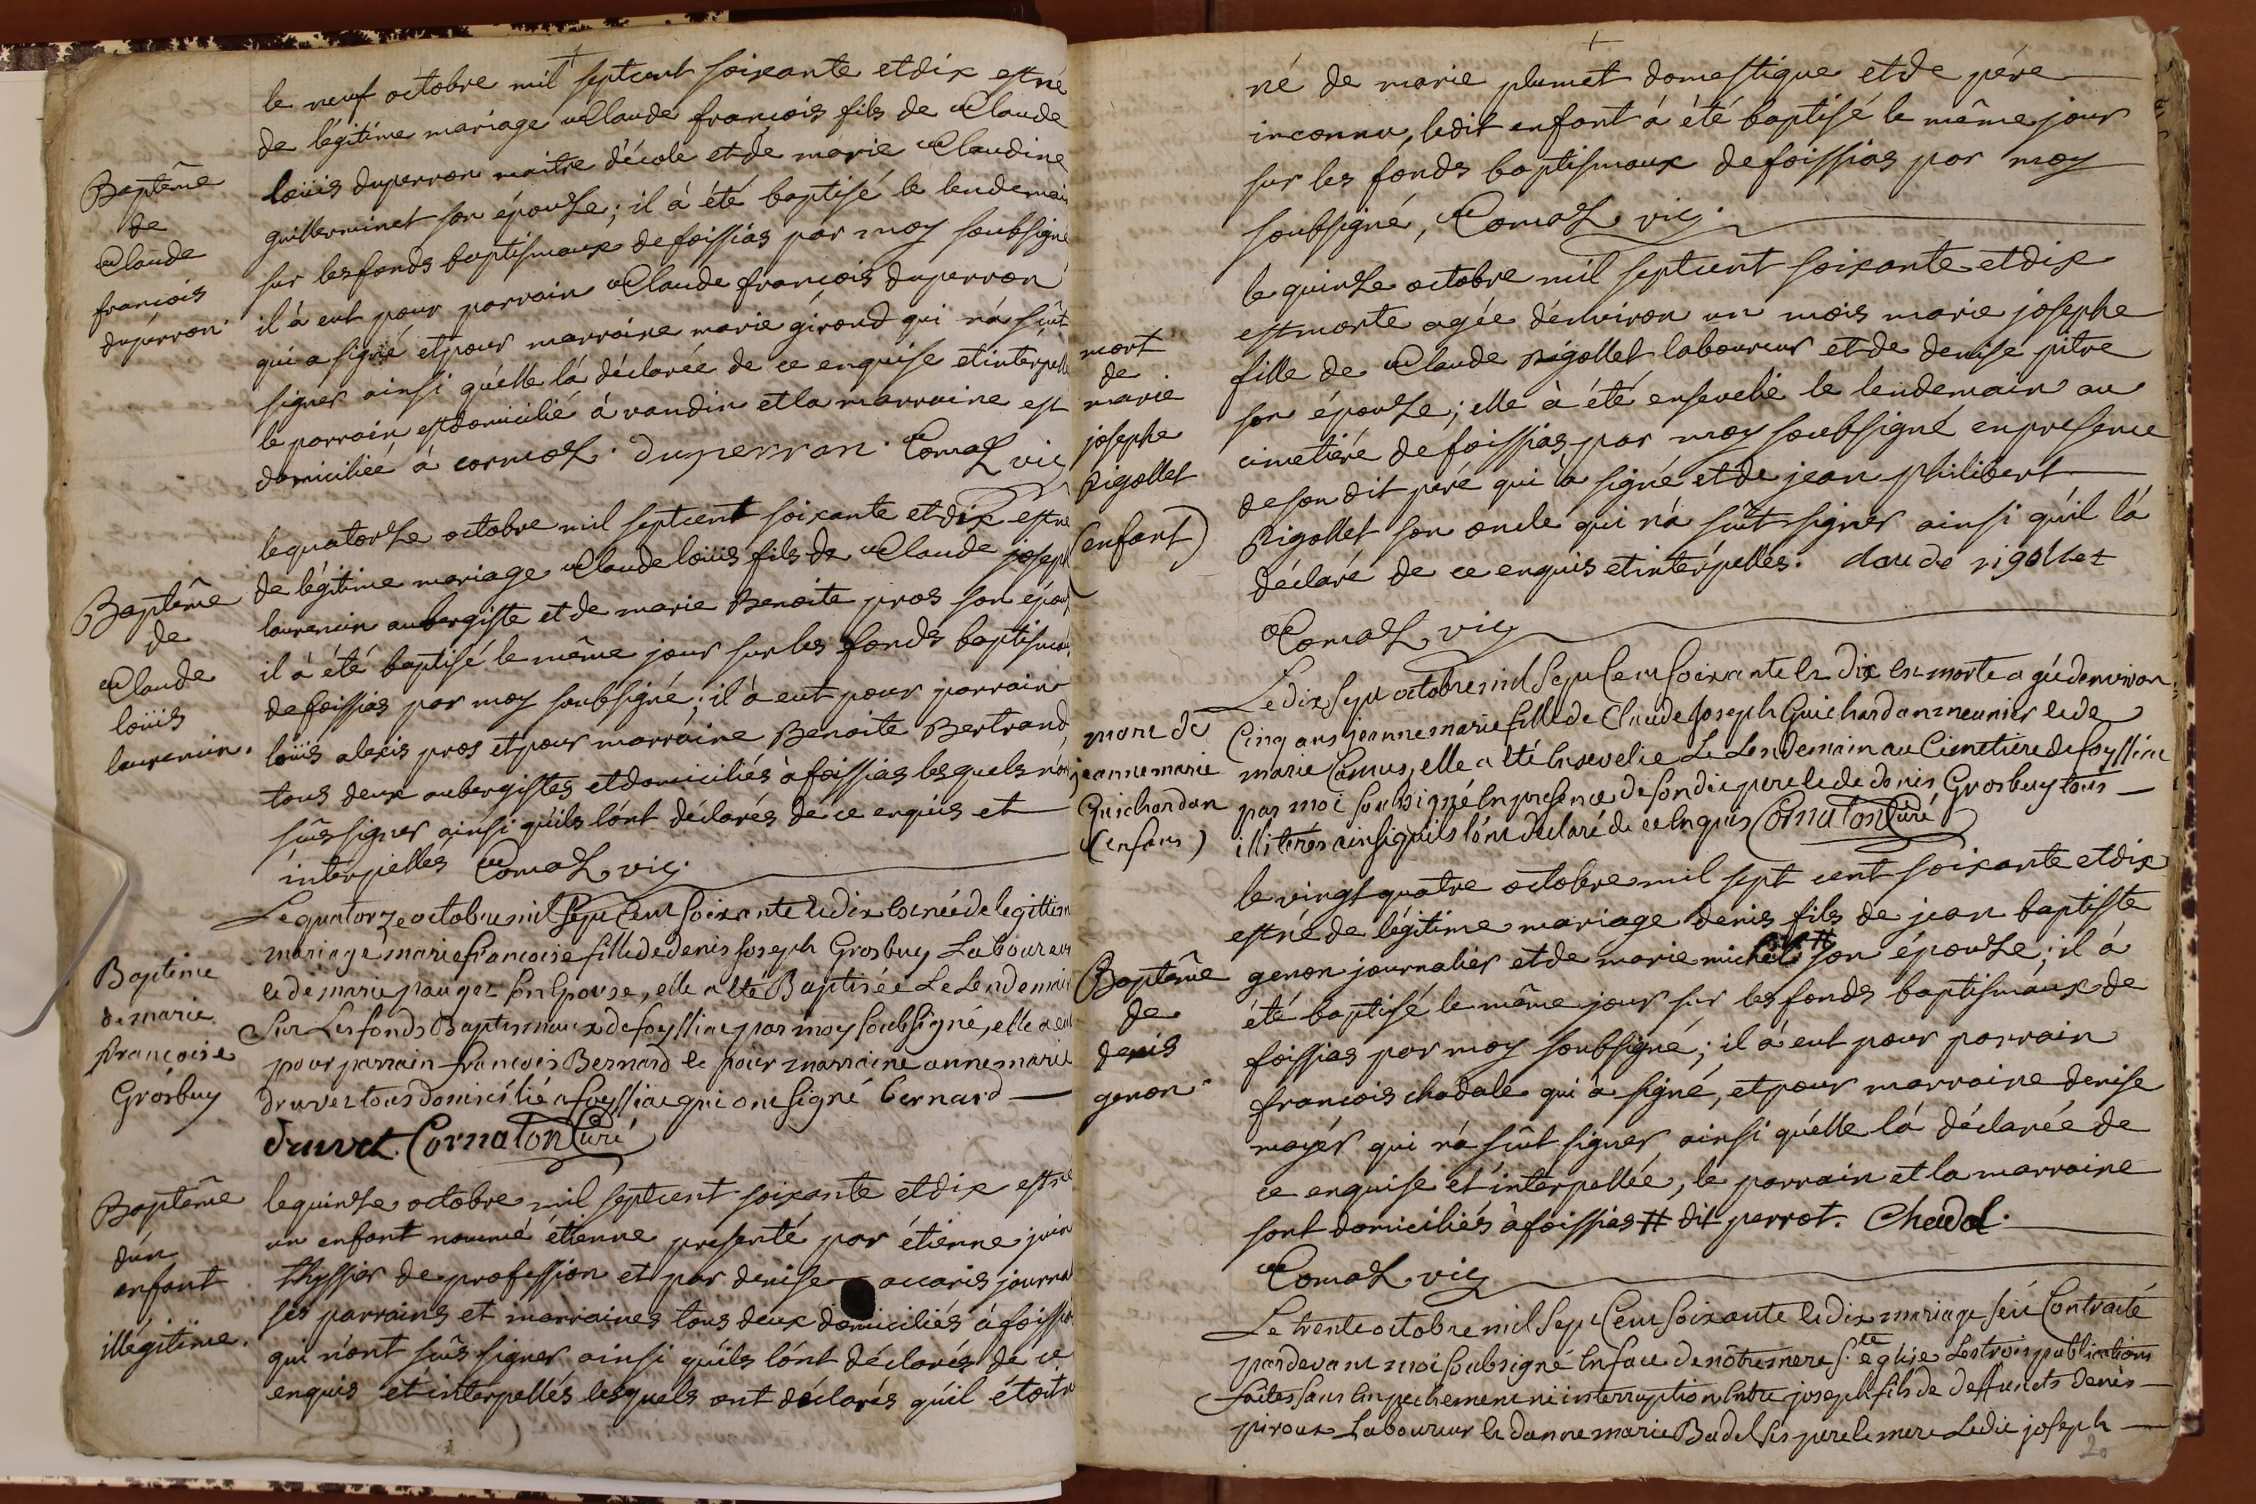 le neuf octobre mil septcent soixante et dix est né
de légitime mariage Claude francois fils de Claude
loüis duperron maitre d'école et de marie Claudine
guillerminet son épouse; il à été baptisé le lendemain
sur les fonds baptismaux de foissias par moy soubsigné
il à eut pour parrain Claude francois duperron
qui a signé et pour marraine marie girond qui n'a sût
signer ainsi qu'elle l'á déclarée de ce enquise et interpellé
le parrain est domicilié à vandin et la marraine est
domiciliée à cormoz. duperran. Comaz vic
Baptême
de
Claude
francois
duperron.
le quatorze octobre mil septcent soixante et dix est né
de légitime mariage Claude loüis fils de Claude joseph
laurencin aubergiste et de marie Benoite pros son épouse
il à été baptisé le même jour sur les fonds baptismaux
de foissias par moy soubsigné; il à eut pour parrain
loüis alexis pros et pour marraine Benoite Bertrand,
tous deux aubergistes et domiciliés à foissias lesquels n'ont
sûs signer ainsi qu'ils l'ónt déclarés de ce enquis et
interpellés Comaz vic.
Baptême
de
Claude
loüis
laurencin.
Le quatorze octobre mil Sept Cent Soixante et dix est née de legitim
mariage marie francoise fille de denis Joseph Grosbuy Laboureur
et de marie pauget son Epouse, elle a été Baptisée Le Lendemain
Sur Les fonds Baptismaux de foyssiac par moy soubsigné, elle a eu
pour parrain francois Bernard et pour marraine anne marie
druvet tous domicilié a foyssiac qui ont signé bernard
druvet. Cornaton Curé
Baptême
de marie
francoise
Grosbuy
le quinze octobre mil septcent soixante et dix est né
un enfant nommé étienne presenté par étienne juin
thyssier de profession et par denise accaris journa
ses parrains et marraines tous deux domiciliés à foissias
qui n'ont sûs signer ainsi qu'ils l'ont déclarés de ce
enquis et interpellés lesquels ont déclarés qu'il étoit
Baptême
d'un
enfant
illégitime.
né de marie plumet domestique et de pére
inconnu, ledit enfant á été baptisé le même jour
sur les fonds baptismaux de foissias par moy
soubsigné, Comaz vic.
le quinze octobre mil septcent soixante et dix
est morte agée d'environ un mois marie josephe
fille de Claude Rigollet laboureur et de denise pitre
son épouse; elle à été ensevelie le lendemain au
cimetiére de foissias par moy soubsigné en presence
de son dit pére qui à signé et de jean philibert
Rigollet son oncle qui n'á sût signer ainsi qu'il l'á
déclaré de ce enquis et interpellés. claude rigollet
Comaz vic
mort
de
marie
josephe
Rigollet
(enfant)
Le dix Sept octobre mil Sept Cent Soixante et Dix est morte agée denviron
Cinq ans jeanne marie fille de Claude Joseph Guichardan meunier et de
marie Camus, elle a été Ensevelie Le Lendemain au Cimetiere de foyssiac
par moi soubsigné En presence de son dit pere et de denis Grosbuy tous
illiterés ainsi quils l'ont declaré de ce Enquis Cornaton Curé
mort de
jeanne marie
Guichardan
(enfans)
le vingt quatre octobre mil sept cent soixante et dix
est né de légitime mariage denis fils de jean baptiste
genon # journalier et de marie michel son épouse; il á
été baptisé le même jour sur les fonds baptismaux de
foissias par moy soubsigné; il á eut pour parrain
francois chadale qui à signé, et pour marraine denise
mayér qui n'á sût signer ainsi qu'elle l'á déclarée de
ce enquise et interpellée, le parrain et la marraine
sont domiciliés à foissias # dit perrot. Chadal.
Comaz vic
Baptême
de
denis
genon.
Le trente octobre mil Sept Cent Soixante et dix mariage a été Contracté
pardevant moi soubsigné En face de nôtre mere Ste église Les trois publications
faites sans Empechement ni interruption Entre joseph fils de deffuncts denis
piroux Laboureur et danne marie Badel ses pere et mere Ledit joseph
20